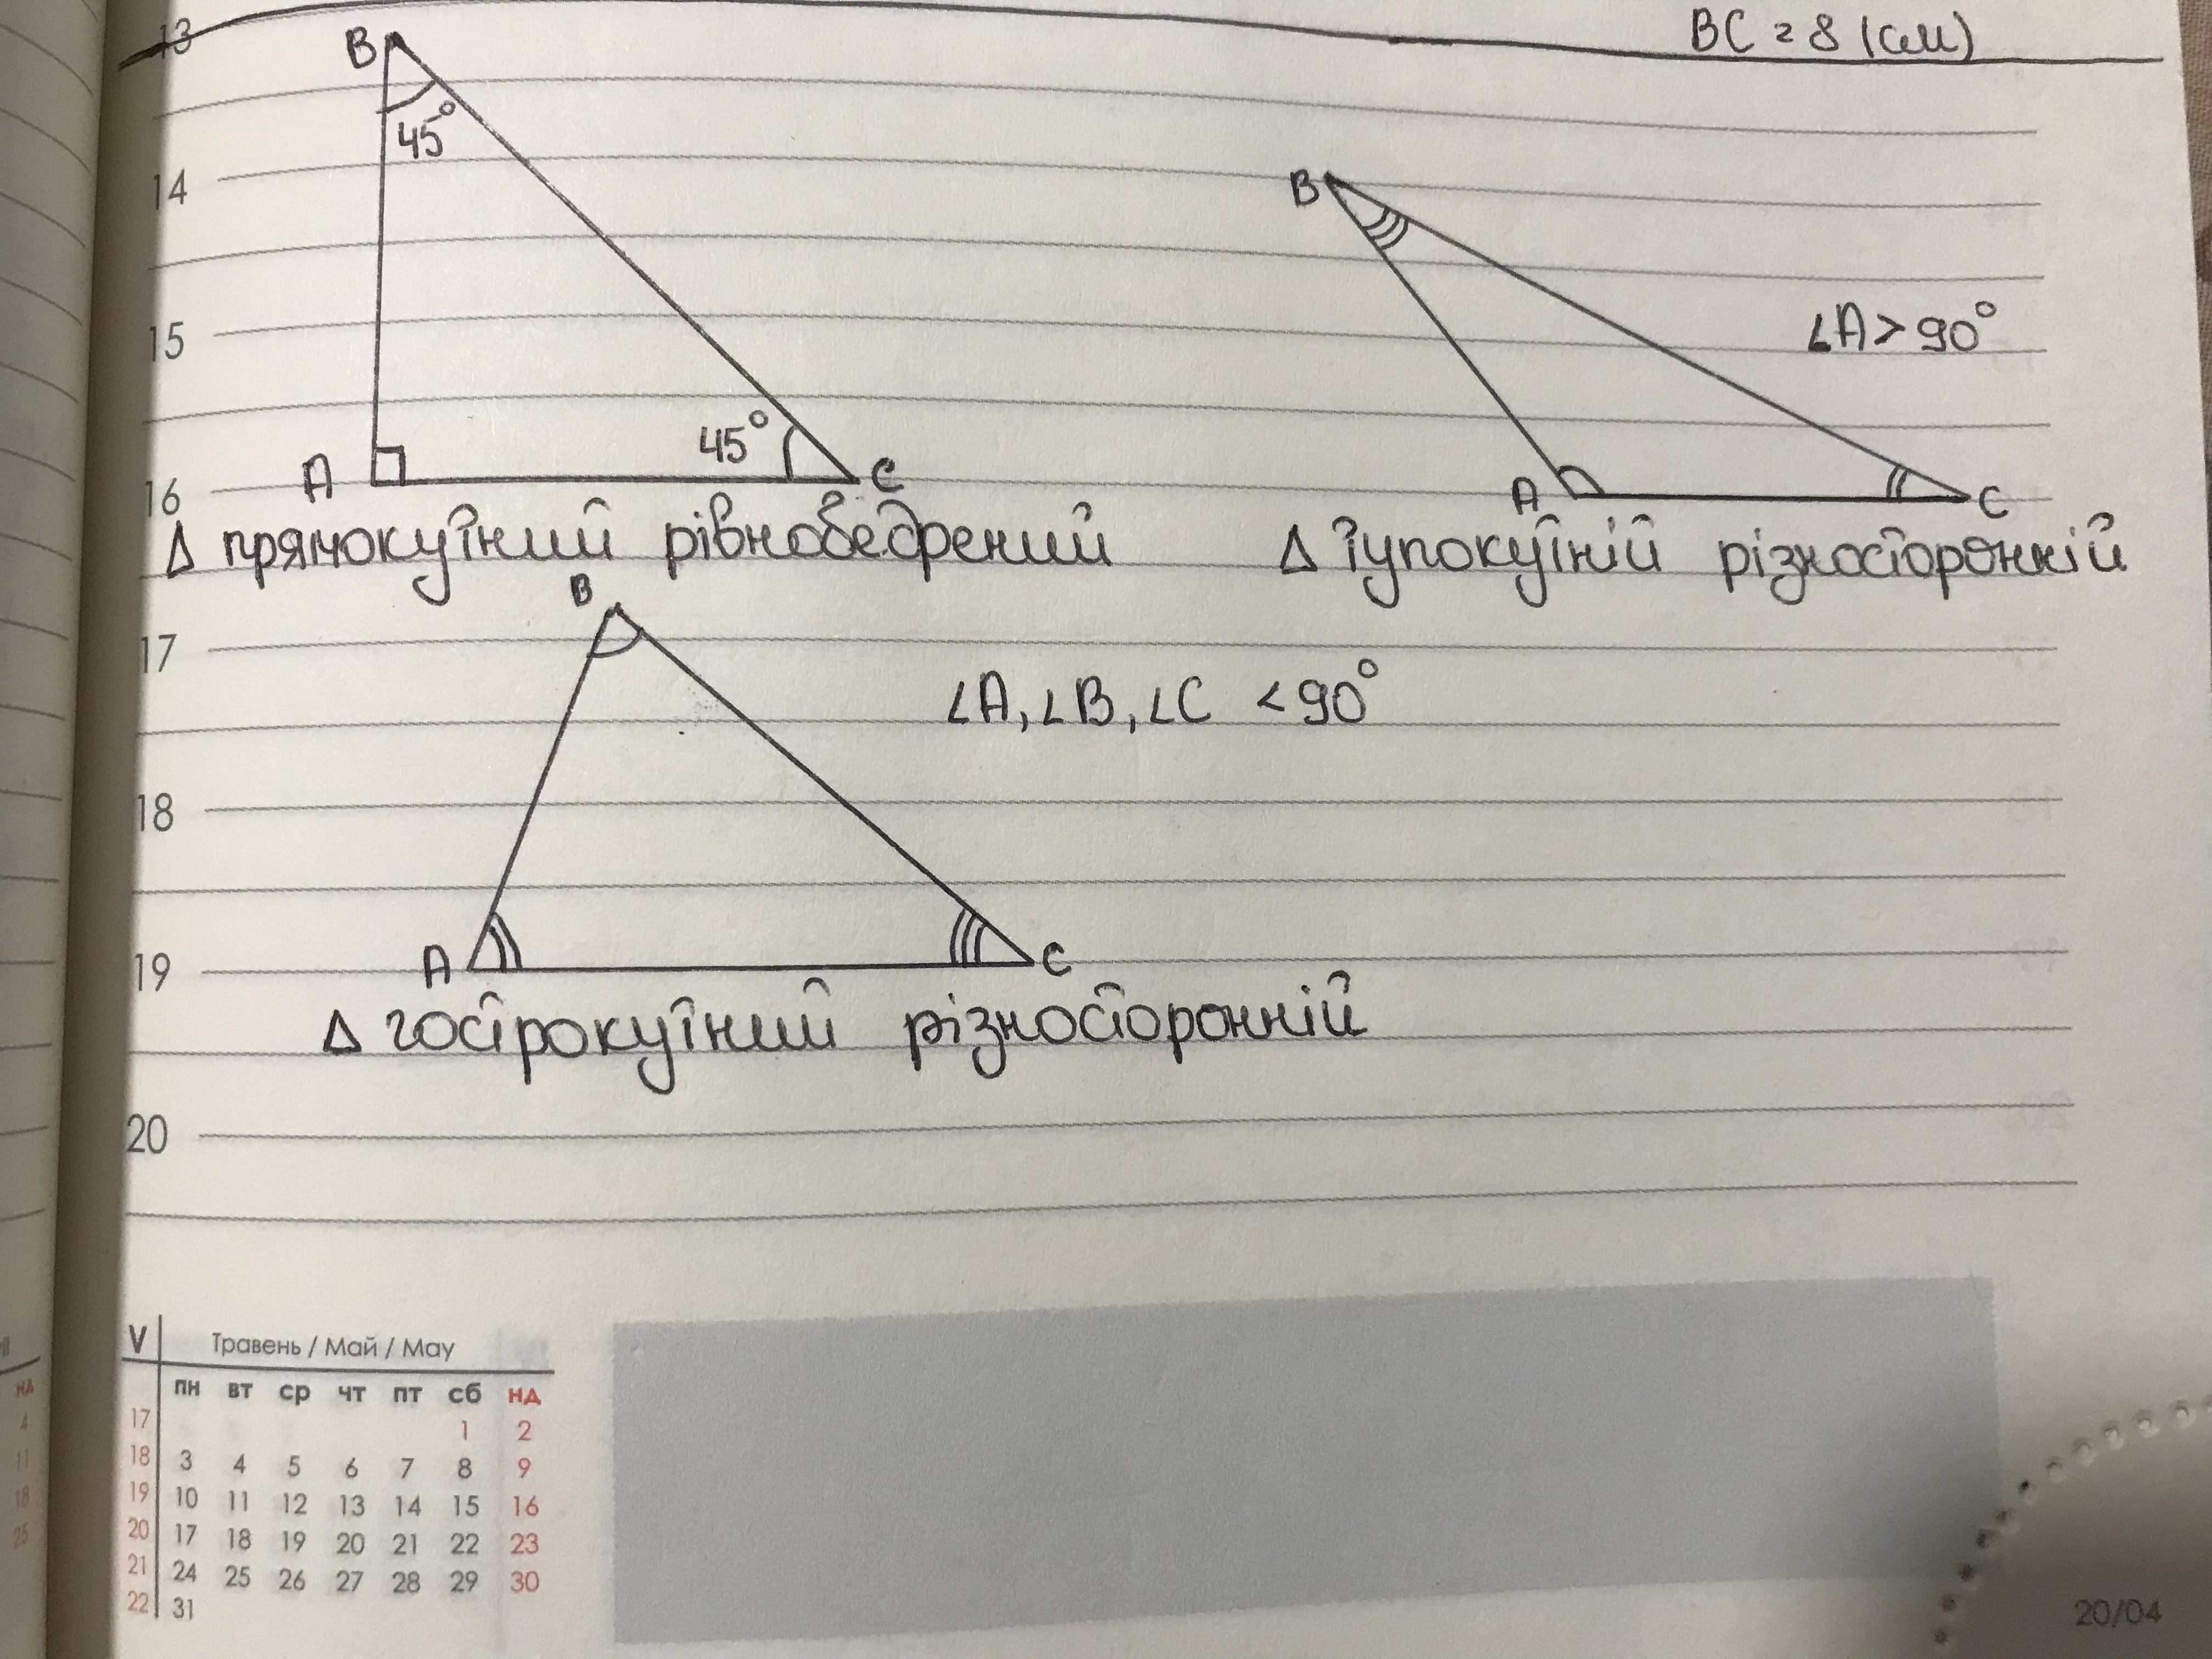 BC = 8 (см)
13
B
45°
14
B
15
∠A > 90°
45°
A
C
16
A
C
Δ прямокутний рівнобедрений
Δ тупокутній різносторонній
B
17
∠A, ∠B, ∠C < 90°
18
A
C
19
Δ гострокутний різносторонній
20
V Травень / Май / May
пн вт ср чт пт сб нд
17 1 2
18 3 4 5 6 7 8 9
19 10 11 12 13 14 15 16
20 17 18 19 20 21 22 23
21 24 25 26 27 28 29 30
22 31
нд
4
11
18
25
20/04